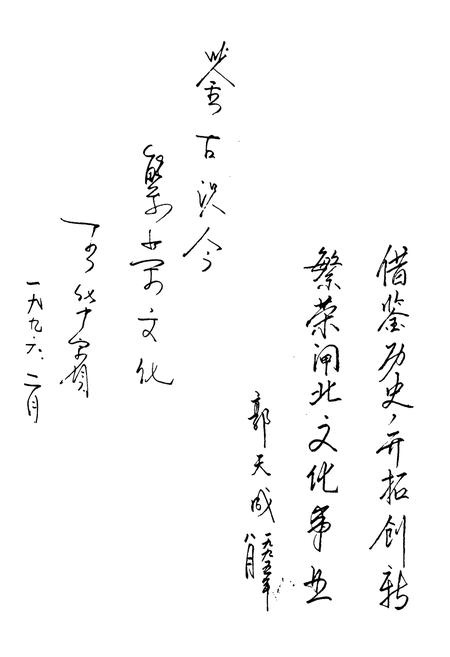 借鉴历史，开拓创新
繁荣闸北文化事业
郭天成
一九九五年
八月
鉴古识今
繁荣文化
一九九六.二月